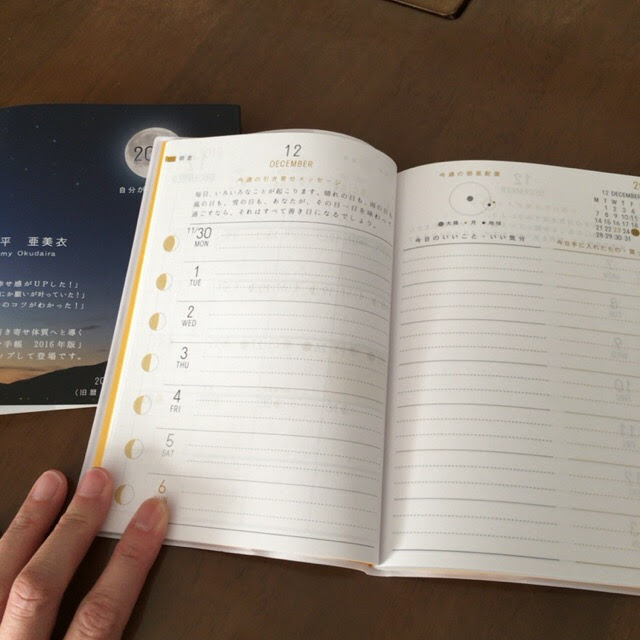 20
自分が
平 亜美衣
my Okudaira
せ感がUPした!」
にか願いが叶っていた!」
のコツがわかった!」
き寄せ体質へと導く
手帳 2016年版」
ップして登場です。
20
(旧暦
12
DECEMBER
今週の引き寄せメッセージ
毎日、いろいろなことが起こります。晴れの日も、雨の日も、
風の日も、雪の日も、あなたが、その日一日を味わ
過ごすなら、それはすべて良き日になるでしょう。
11/30
MON
1
TUE
2
WED
3
THU
4
FRI
5
SAT
6
今週の惑星配置
太陽
月
地球
12 DECEMBER
M T W T F
1 2 3 4
7 8 9 10 11
14 15 16 17 18
21 22 23 24
28 29 30 31
今日のいいこと・いい気分
今日手に入れたもの